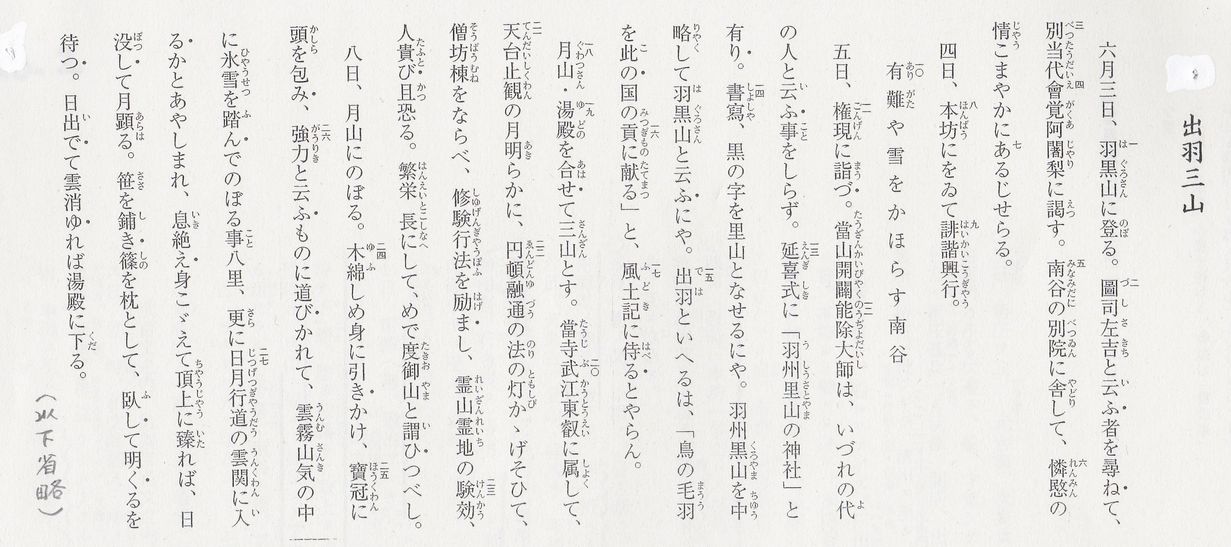 出羽三山
六月三日、羽黒山に登る。圖司左吉と云ふ者を尋ねて、
別当代會覚阿闍梨に謁す。南谷の別院に舎して、憐愍の
情こまやかにあるじせらる。
四日、本坊にをゐて誹諧興行。
有難や雪をかほらす南谷
五日、権現に詣づ。當山開闢能除大師は、いづれの代
の人と云ふ事をしらず。延喜式に「羽州里山の神社」と
有り。書寫、黒の字を里山となせるにや。羽州黒山を中
略して羽黒山と云ふにや。出羽といへるは、「鳥の毛羽
を此の国の貢に献る」と、風土記に侍るとやらん。
月山・湯殿を合せて三山とす。當寺武江東叡に属して、
天台止観の月明らかに、円頓融通の法の灯かゝげそひて、
僧坊棟をならべ、修験行法を励まし、霊山霊地の験効、
人貴び且恐る。繁栄長にして、めで度御山と謂ひつべし。
八日、月山にのぼる。木綿しめ身に引きかけ、寶冠に
頭を包み、強力と云ふものに道びかれて、雲霧山気の中
に氷雪を踏んでのぼる事八里、更に日月行道の雲関に入
るかとあやしまれ、息絶え身こゞえて頂上に臻れば、日
没して月顕る。笹を鋪き篠を枕として、臥して明くるを
待つ。日出でて雲消ゆれば湯殿に下る。
(以下省略)